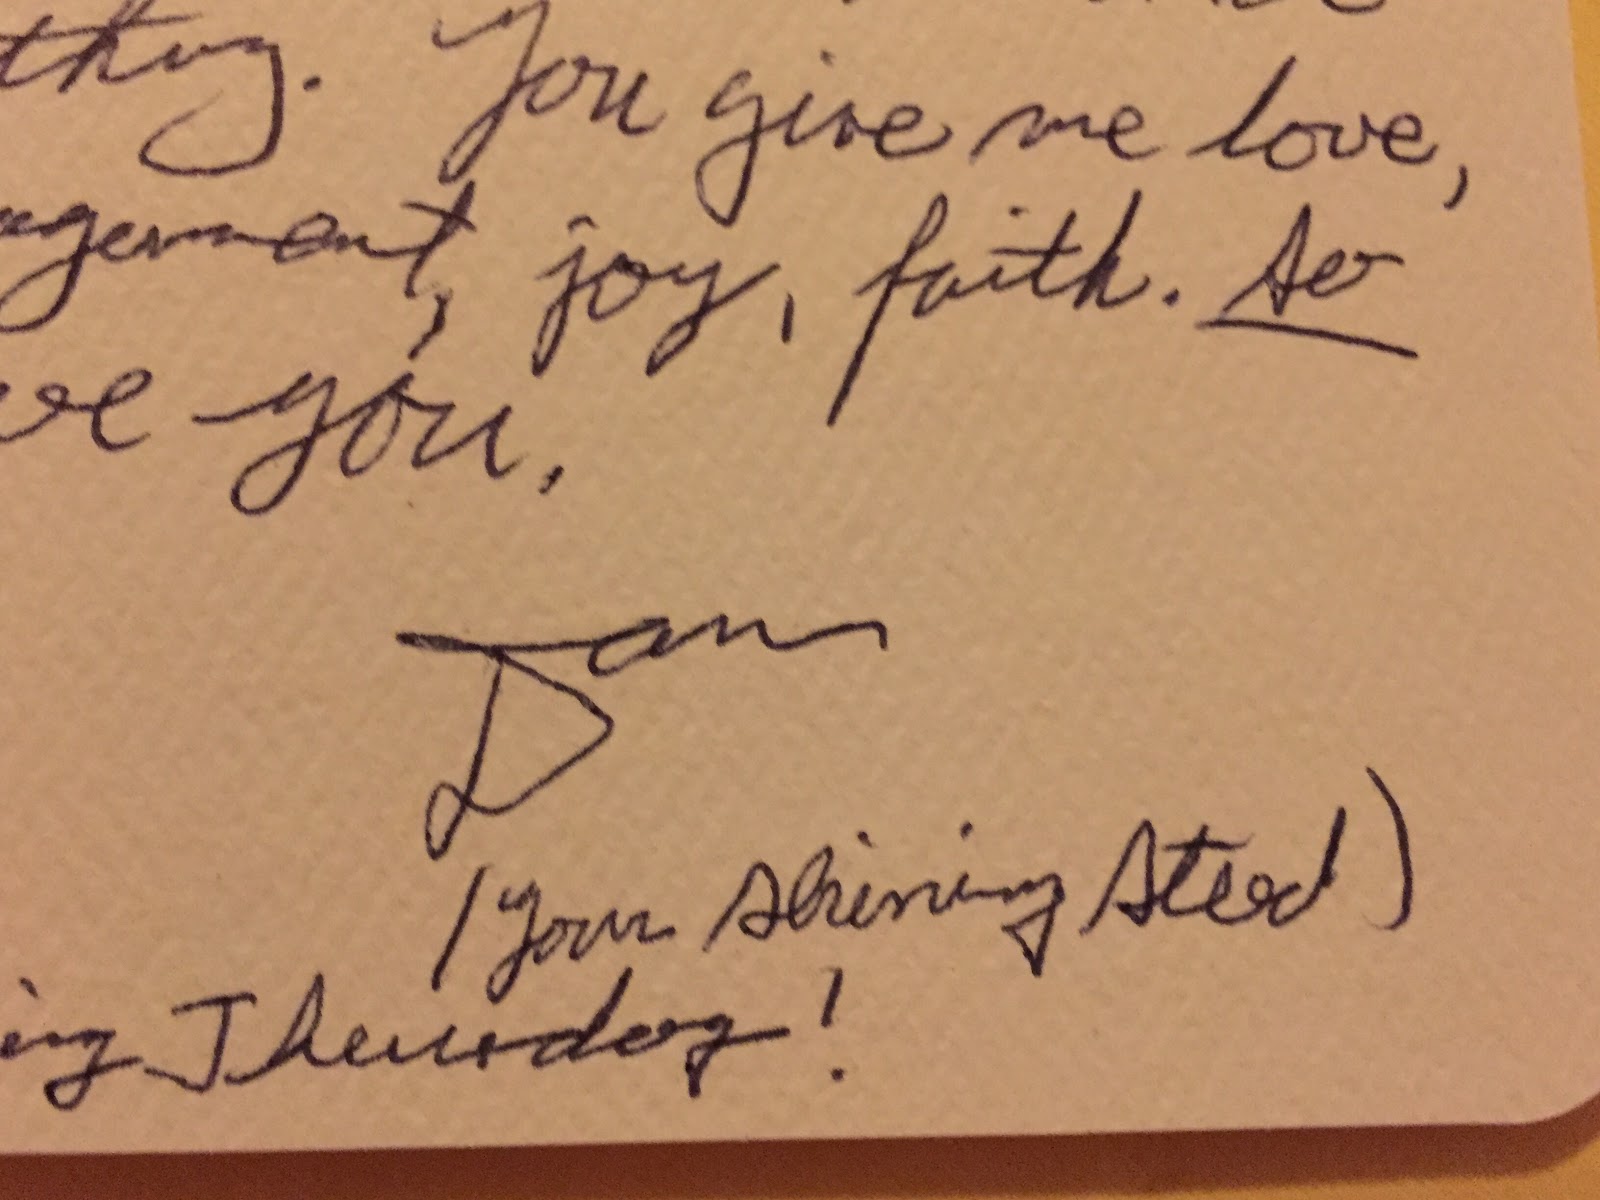 thing. You give me love,
agement, joy, faith. So
ve you,
Dan
(your shining steed)
ing Thursday!